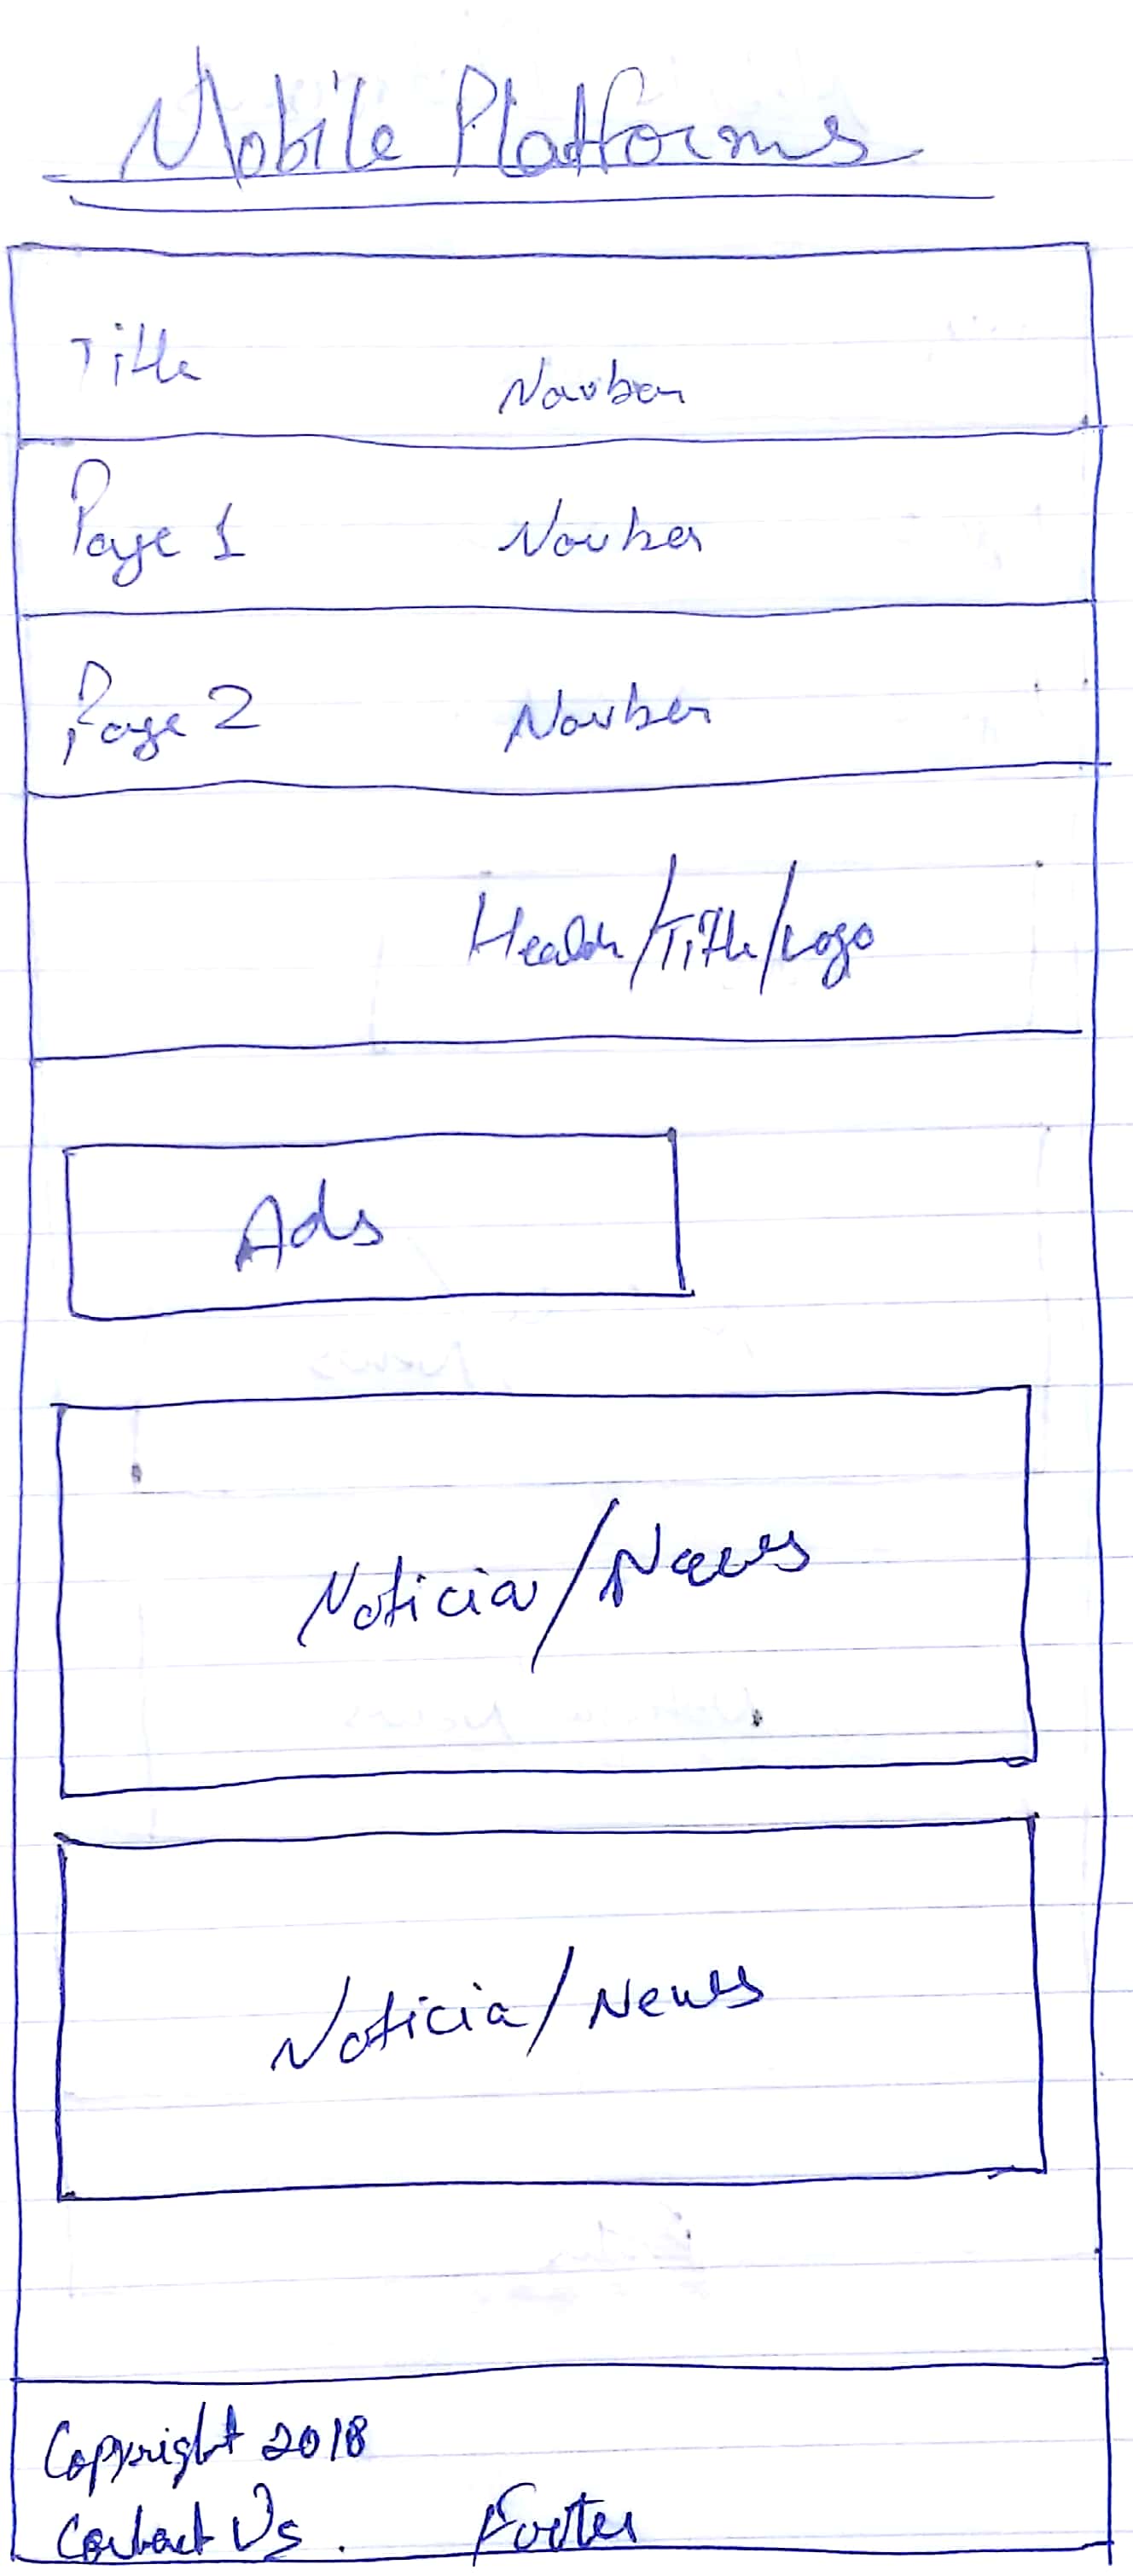 Mobile Platforms
Title Navbar
Page 1 Navbar
Page 2 Navbar
Header/Title/Logo
Ads
Noticia/News
Noticia/News
Copyright 2018
Contact Us. Footer